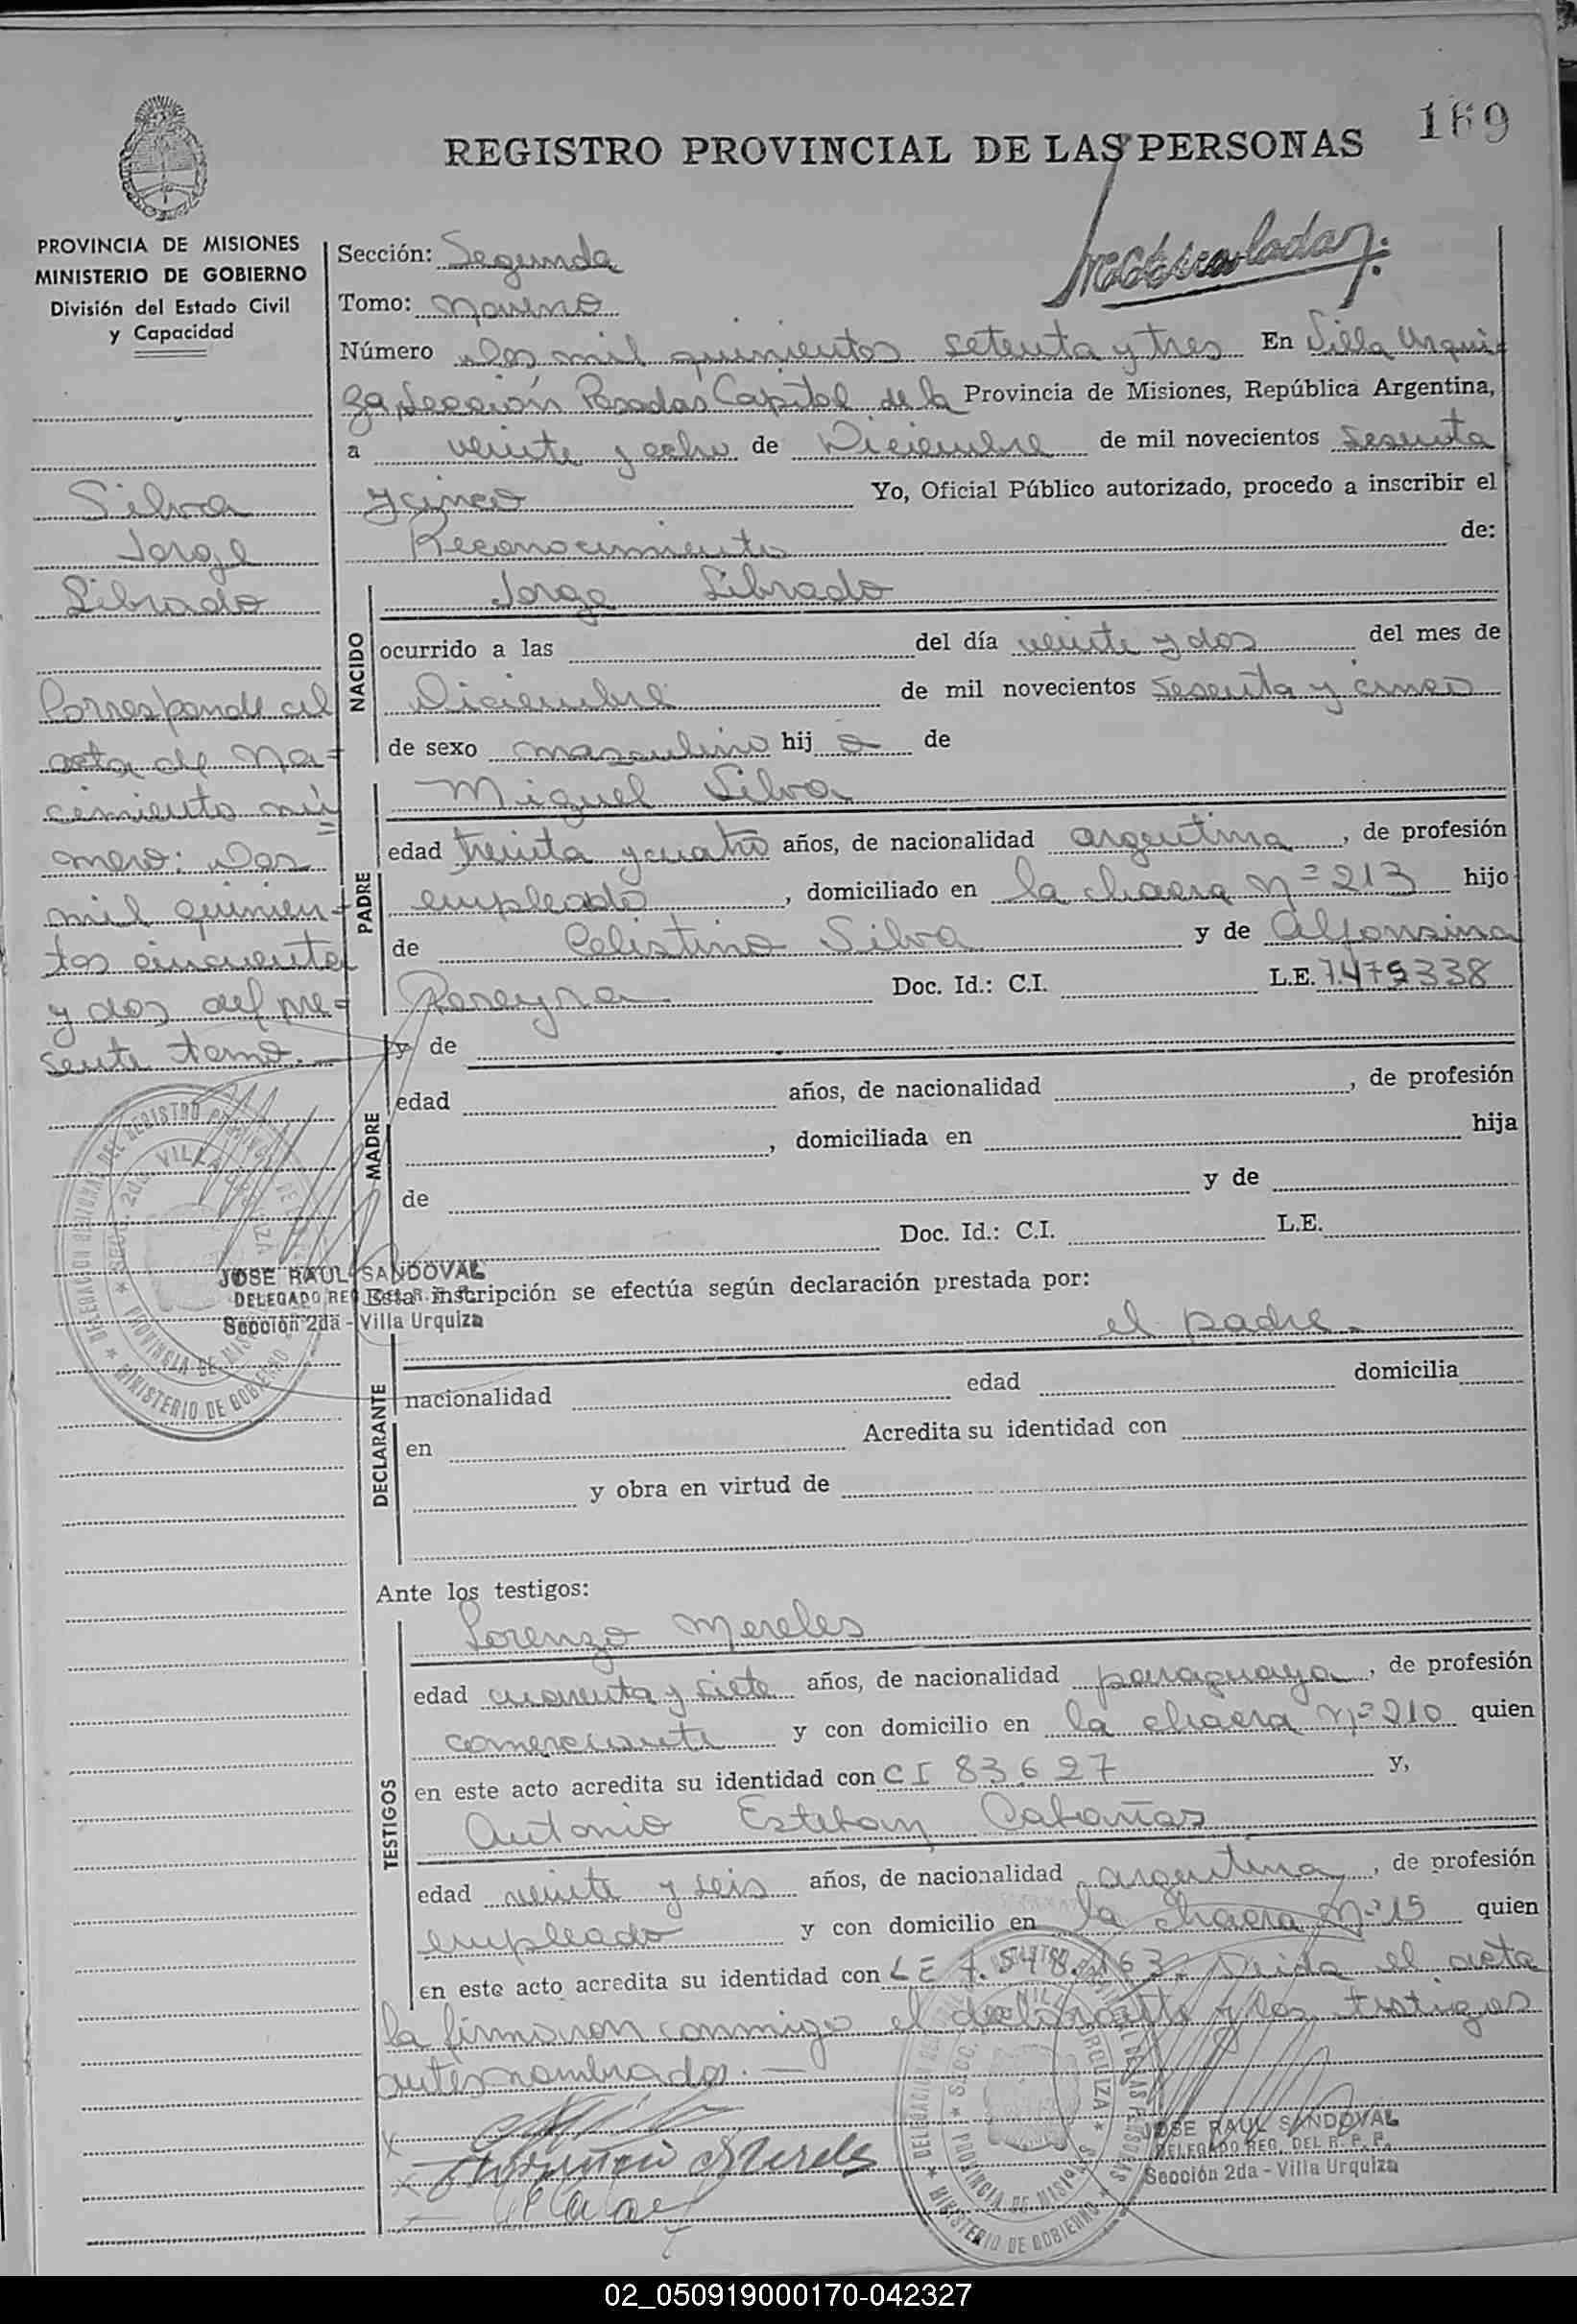 169
REGISTRO PROVINCIAL DE LAS PERSONAS
PROVINCIA DE MISIONES
MINISTERIO DE GOBIERNO
División del Estado Civil
y Capacidad
Silva
Jorge
Librado
Corresponde al
acta de Na-
cimiento nú
mero: dos
mil quinien-
tos cincuenta
y dos del pre-
sente tomo.
JOSE RAUL SANDOVAL
DELEGADO REG. DEL R. P. P.
Sección 2da - Villa Urquiza
Sección: Segunda
Tomo: noveno
Número dos mil quinientos setenta y tres En Villa Urqui
za Sección Posadas Capital de la Provincia de Misiones, República Argentina,
a veinte y ocho de Diciembre de mil novecientos sesenta
y cinco Yo, Oficial Público autorizado, procedo a inscribir el
Reconocimiento de:
NACIDO
Jorge Librado
ocurrido a las del día veinte y dos del mes de
Diciembre de mil novecientos sesenta y cinco
de sexo masculino hij o de
PADRE
Miguel Silva
edad treinta y cuatro años, de nacionalidad argentina, de profesión
empleado, domiciliado en la chacra Nº 213 hijo
de Celistino Silva y de Alfonsina
Pereyra Doc. Id.: C.I. L.E. 7.475338
MADRE
y de
edad años, de nacionalidad , de profesión
, domiciliada en hija
de y de
Doc. Id.: C.I. L.E.
Esta inscripción se efectúa según declaración prestada por:
DECLARANTE
el padre.
nacionalidad edad domicilia
en Acredita su identidad con
y obra en virtud de
Ante los testigos:
TESTIGOS
Lorenzo Mereles
edad cuarenta y siete años, de nacionalidad paraguaya, de profesión
comerciante y con domicilio en la chacra Nº 210 quien
en este acto acredita su identidad con CI 83.627 y,
Antonio Esteban Cabañas
edad veinte y seis años, de nacionalidad argentina, de profesión
empleado y con domicilio en la chacra Nº 15 quien
en este acto acredita su identidad con LE 7.548.163. Leida el acta
la firmaron conmigo el declarante y los testigos
antes nombrados.
JOSE RAUL SANDOVAL
DELEGADO REG. DEL R. P. P.
Sección 2da - Villa Urquiza
DELEGACION REGIONAL DEL REGISTRO PROVINCIAL DE LAS PERSONAS
MINISTERIO DE GOBIERNO
SECC. 2da. VILLA URQUIZA
PROVINCIA DE MISIONES
02_050919000170-042327